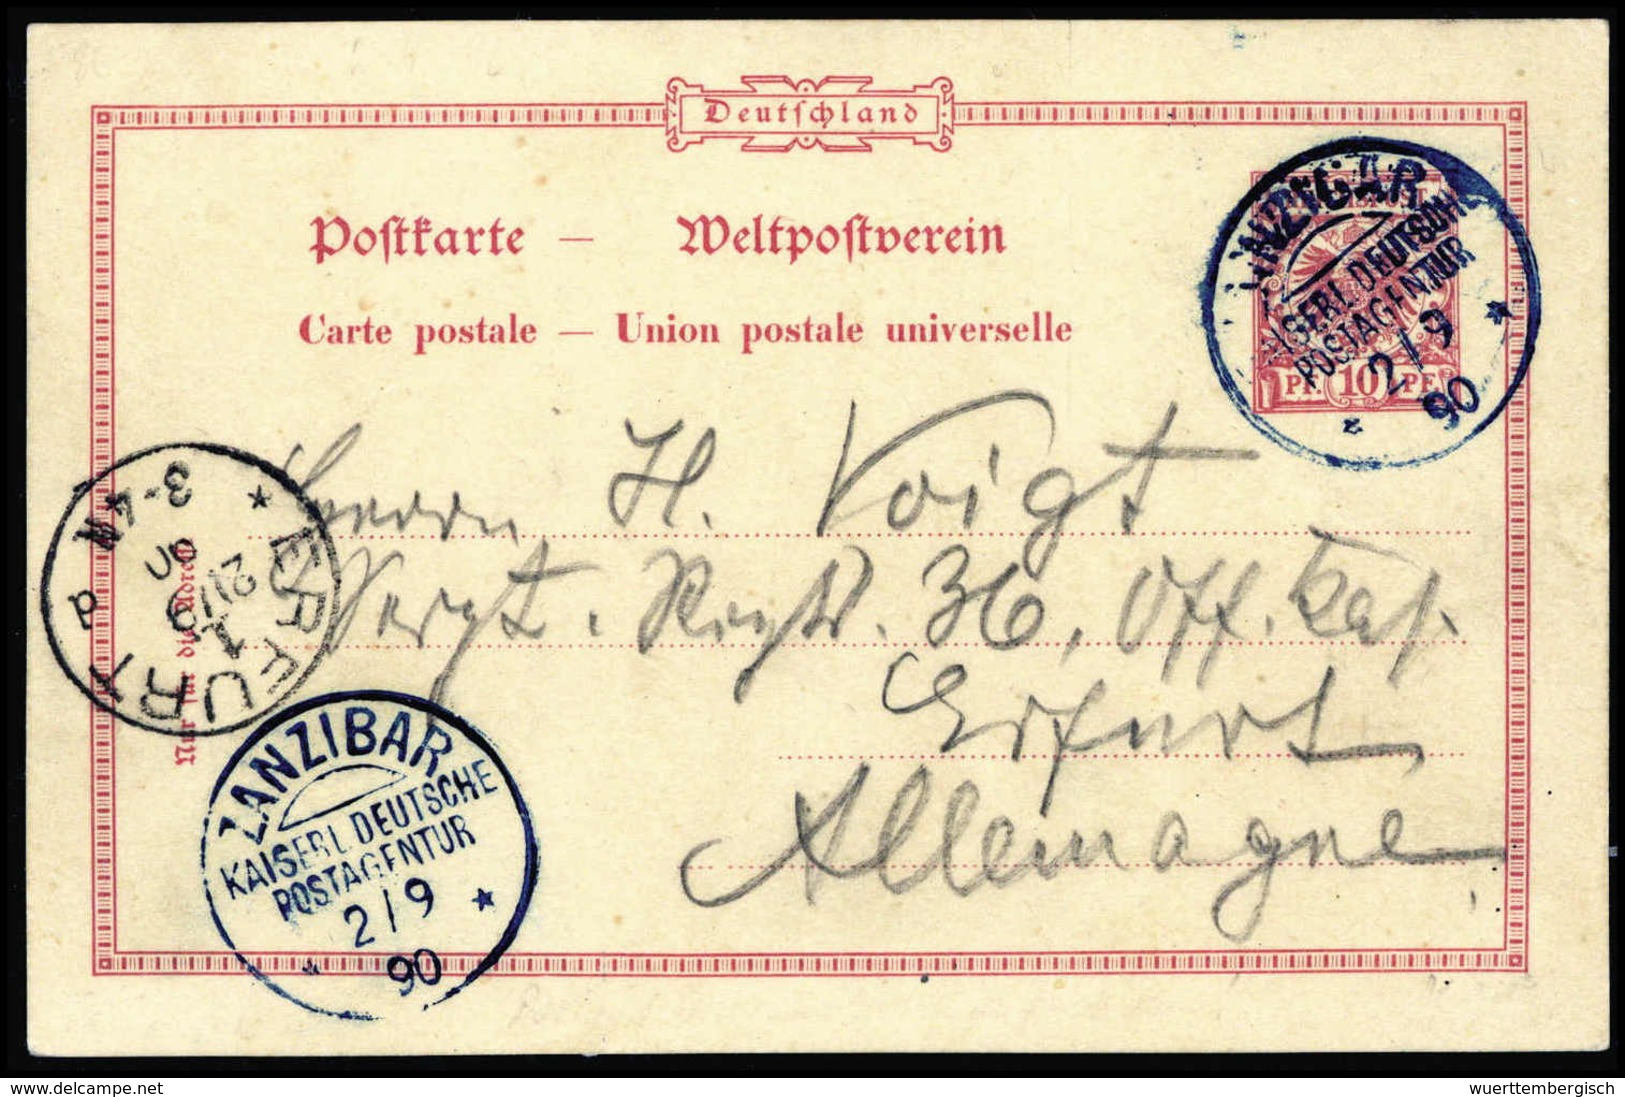 Deutschland
Postkarte — Weltpostverein
Carte postale — Union postale universelle
KAISERL. DEUTSCHE
POSTAGENTUR
2/9
90
PF. 10 PF.
Herrn H. Voigt
Sergt. Regt. 36, Off. Kas.
Erfurt
Allemagne
ERFURT
1
21/9
90
3-4N
d
Nur für die Adresse
ZANZIBAR
KAISERL. DEUTSCHE
POSTAGENTUR
2/9
90
www.delcampe.net
wuerttembergisch